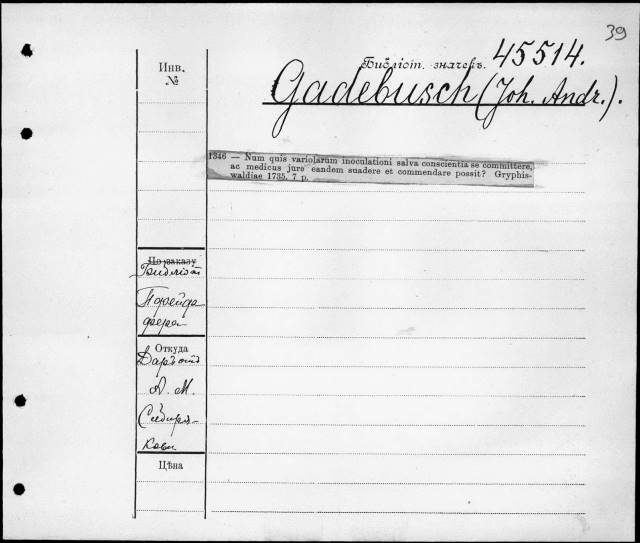 39
Библіот. значекъ. 45514.
Инв.
№
Gadebusch (Joh. Andr.).
1346 — Num quis variolarum inoculationi salva conscientia se committere,
ac medicus jure eandem suadere et commendare possit? Gryphis-
waldiae 1735. 7 p.
По заказу
Библіот
Пфейф
фера
Откуда
Даръ отъ
А. М.
Сибиря-
кова
Цѣна